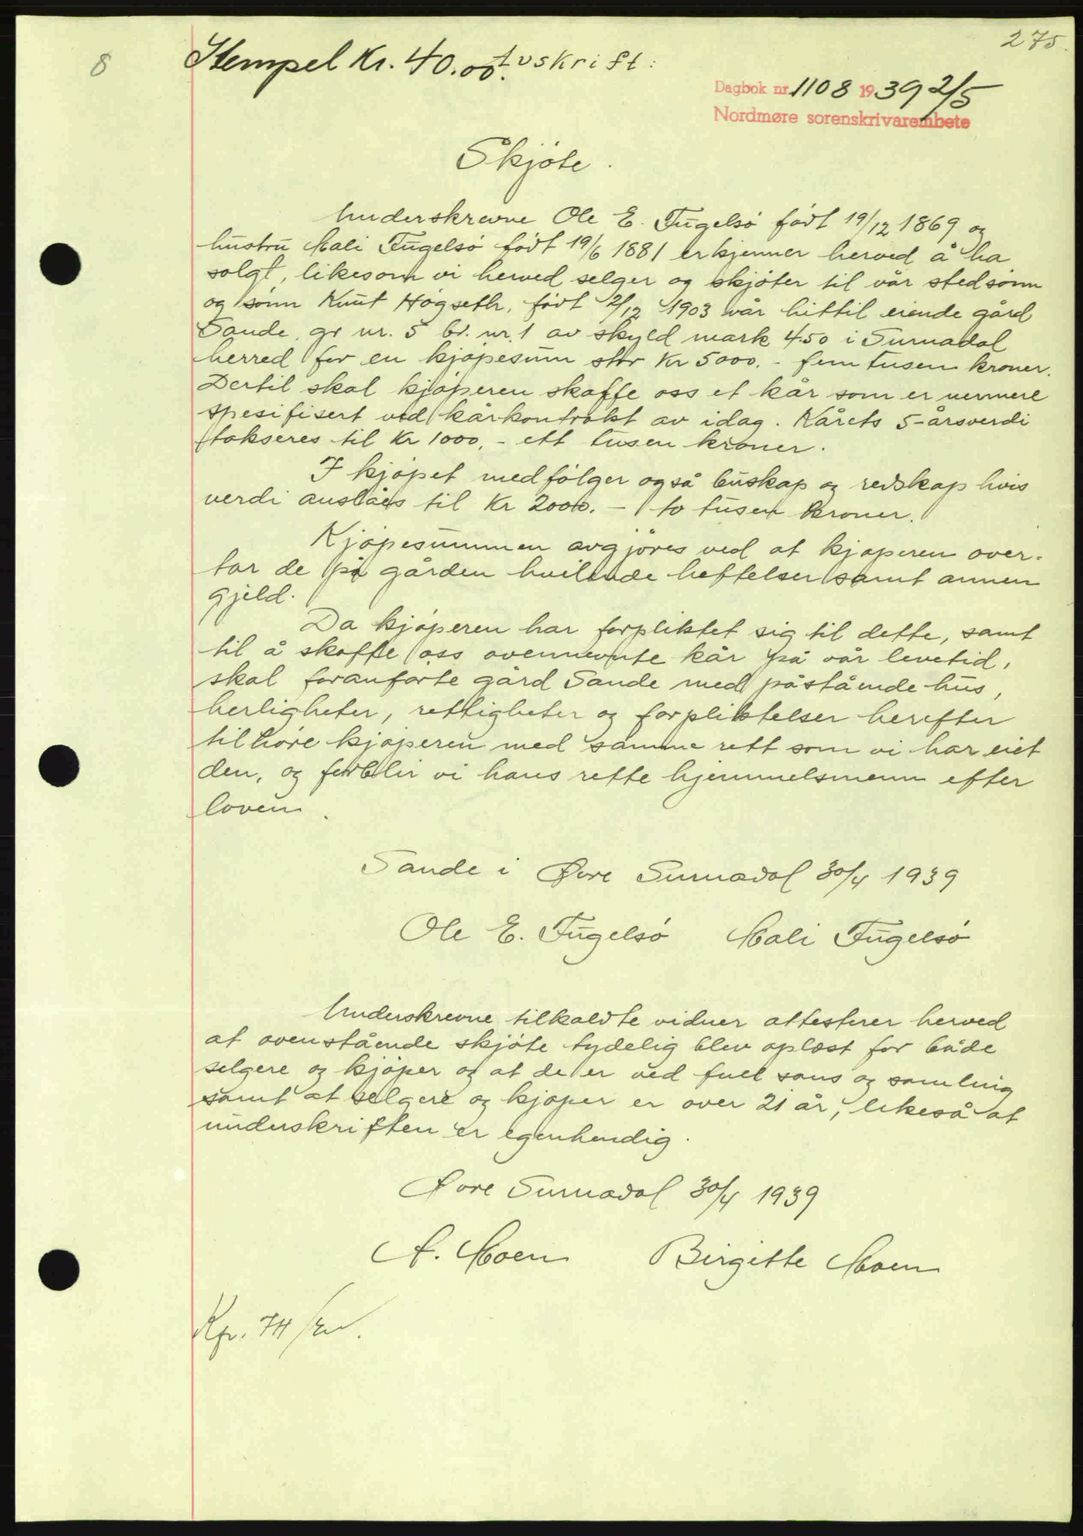 275.
8
Stempel Kr. 40.00. Avskrift:
Dagbok nr. 1108 1939 2/5
Nordmøre sorenskrivarembete
Skjöte.
Underskrevne Ole E. Fugelsö født 19/12 1869 og
hustru Mali Fugelsö født 19/6 1881 erkjenner herved å ha
solgt, likesom vi herved selger og skjöter til vår stedsönn
og sönn Knut Högseth, født 2/12 1903 vår hittil eiende gård
Sande, gr nr. 5 br. nr. 1 av skyld mark 4.50 i Surnadal
herred for en kjöpesum stor Kr 5000.- fem tusen kroner.
Dertil skal kjöperen skaffe oss et kår som er nermere
spesifisert ved kårkontrakt av idag. Kårets 5-årsverdi
takseres til Kr 1000,- ett tusen kroner.
I kjöpet medfölger også buskap og redskap hvis
verdi anslåes til Kr 2000.- to tusen kroner.
Kjöpesummen avgjöres ved at kjöperen over-
tar de på gården hvilende heftelser samt annen
gjeld.
Da kjöperen har forpliktet sig til dette, samt
til å skaffe oss ovennevnte kår på vår levetid,
skal foranførte gård Sande med påstående hus,
herligheter, rettigheter og forpliktelser herefter
tilhöre kjöperen med samme rett som vi har eiet
den, og forblir vi hans rette hjemmelsmenn efter
loven.
Sande i Øvre Surnadal 30/4 1939
Ole E. Fugelsö Mali Fugelsö
Underskrevne tilkaldte vidner attesterer herved
at ovenstående skjöte tydelig blev oplæst for både
selgere og kjöper og at de er ved full sans og samling
samt at selgere og kjöper er over 21 år, likeså at
underskriften er egenhendig.
Øvre Surnadal 30/4 1939
A. Moen Birgitte Moen
Kfr. 74